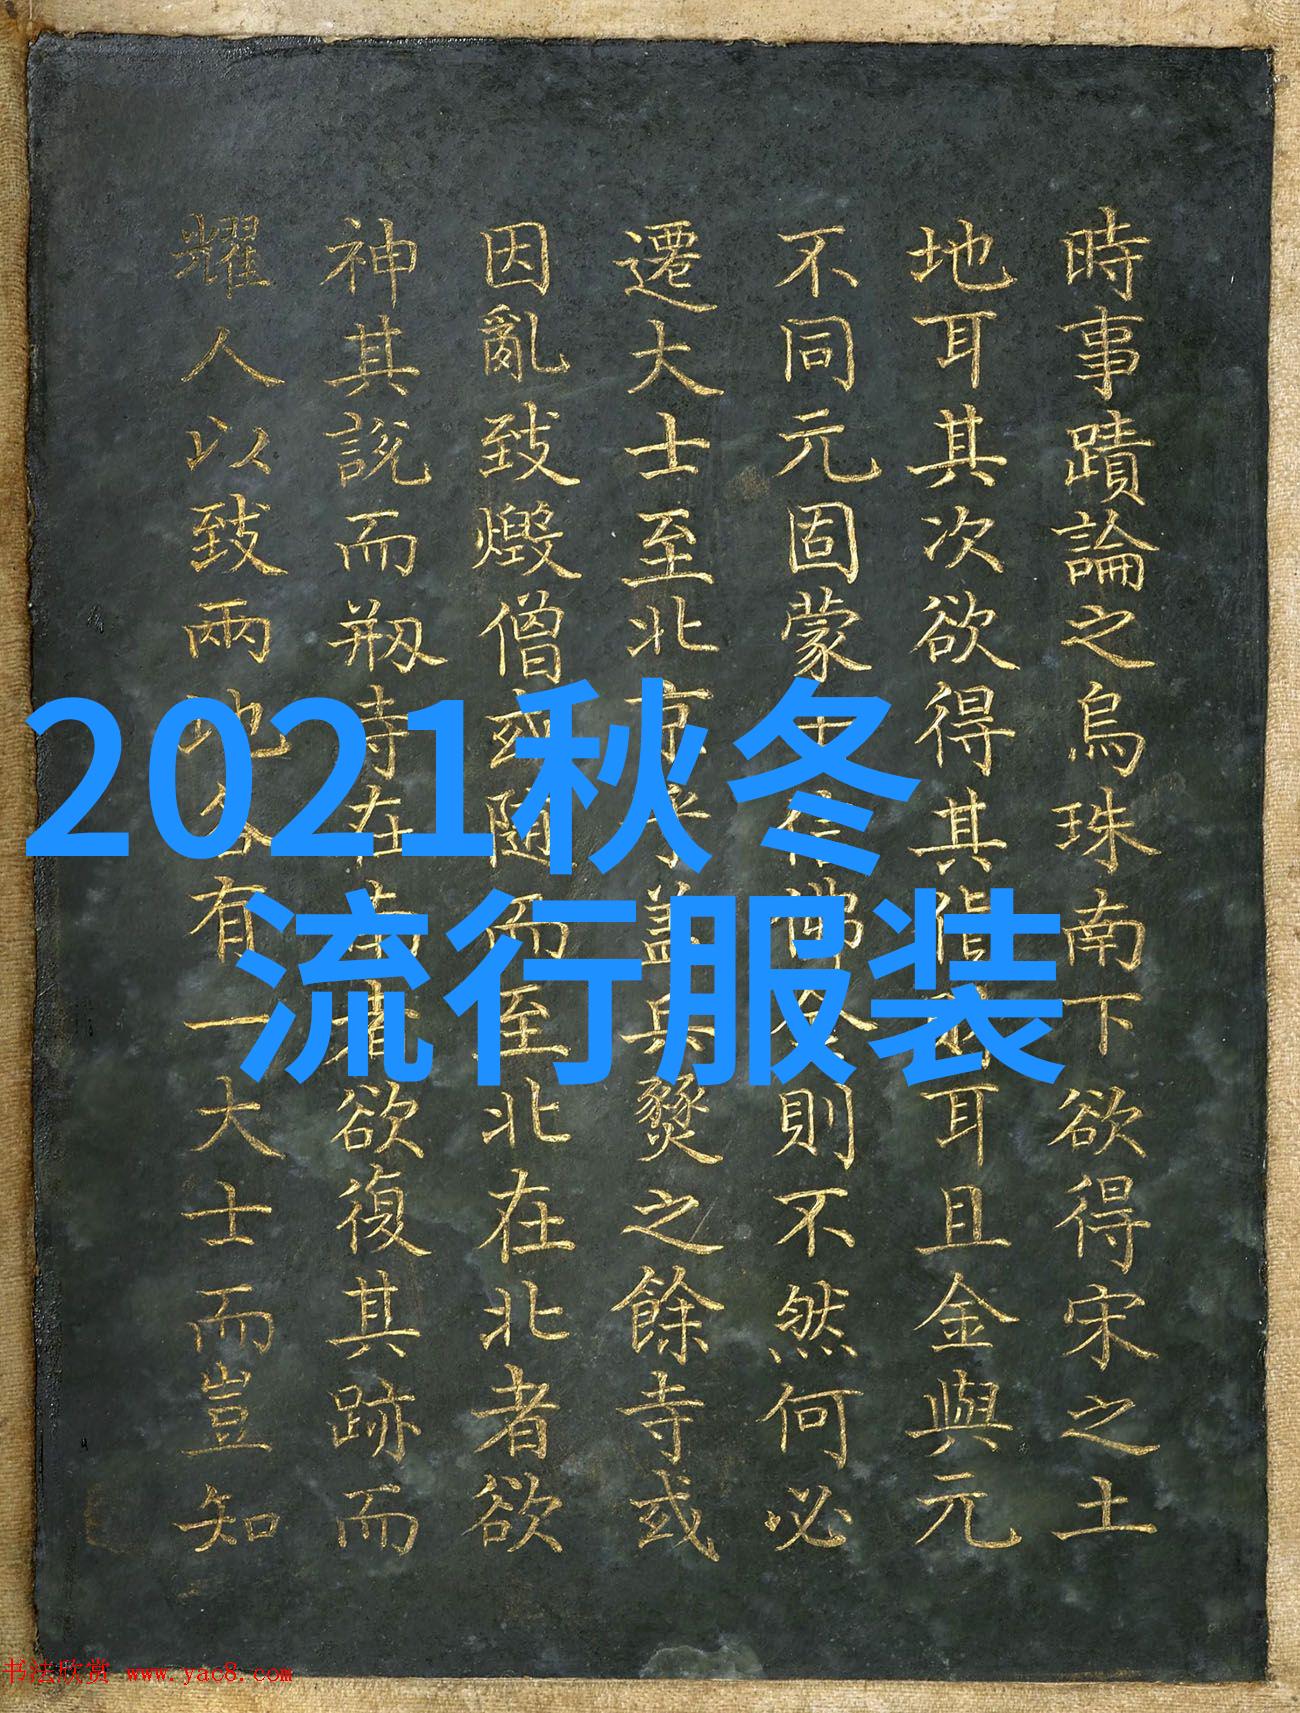 時事蹟論之烏珠南下欲得宋之土
地耳其次欲得其階耳且金與元
不同元固蒙古信佛金則不然何必
遷大士至北京乎蓋兵燹之餘寺或
因亂致燬僧或隨而至北在北者欲
神其說而剏寺在南者欲復其跡而
耀人以致兩地各有一大士而豈知
2021秋冬
流行服装
书法欣赏 www.yac8.com